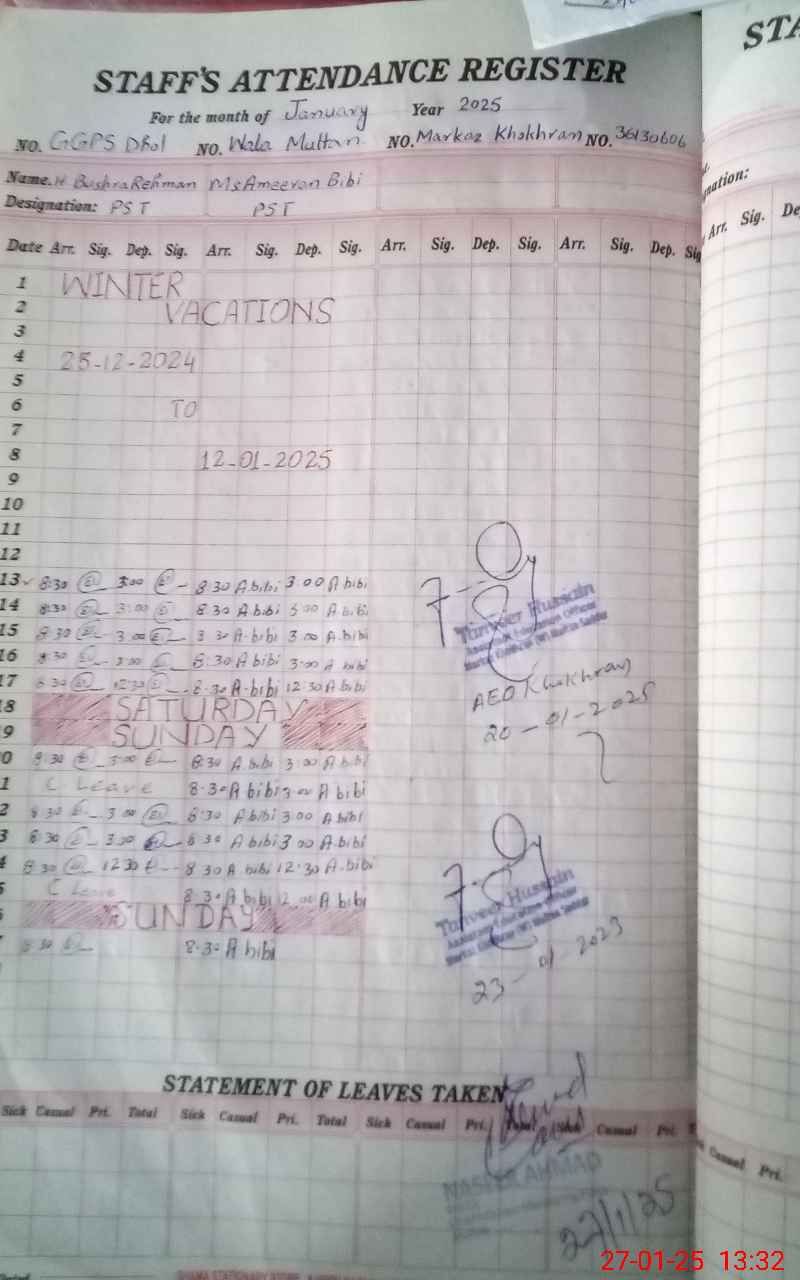 STAFF'S ATTENDANCE REGISTER
For the month of January Year 2025
NO. GGPS DHol NO. Wala Multan NO. Markaz Khokhran NO. 36130606
Name. Bushra Rehman Ms Ameeran Bibi
Designation: PST PST
Date Arr. Sig. Dep. Sig. Arr. Sig. Dep. Sig. Arr. Sig. Dep. Sig. Arr. Sig. Dep. Sig
1 WINTER
2 VACATIONS
3
4 25-12-2024
5
6 TO
7
8 12-01-2025
9
10
11
12
13 8:30 3:00 8:30 A bibi 3:00 A bibi
14 8:30 3:00 8 30 A bibi A bibi
15 8 30 3 00 A bibi 3 00 A bibi
16 8:30 3:00 8:30 A bibi 3:00 A bibi
17 8 30 12:30 8:30 A bibi 12:30 A bibi
18 SATURDAY
9 SUNDAY
0 8:30 3:00 8:30 A bibi 3:00 A bibi
1 C Leave 8:30 A bibi 3:00 A bibi
2 8 30 3 00 8:30 A bibi 3 00 A bibi
3 8 30 3 00 8 30 A bibi 3 00 A bibi
4 8:30 12 30 8 30 A bibi 12:30 A bibi
5 C Leave 8:30 A bibi A bibi
SUNDAY
8 30 8:30 A bibi
Tanveer Hussain
Assistant Education Officer
AEO Khokhran
20-01-2025
Tanveer Hussain
Assistant Education Officer
23-01-2023
STATEMENT OF LEAVES TAKEN
Sick Casual Pri. Total Sick Casual Pri. Total Sick Casual Pri. Total Sick Casual Pri.
NASEER AHMAD
27/1/25
STA
nation:
Arr. Sig. De
Casual Pri.
27-01-25 13:32